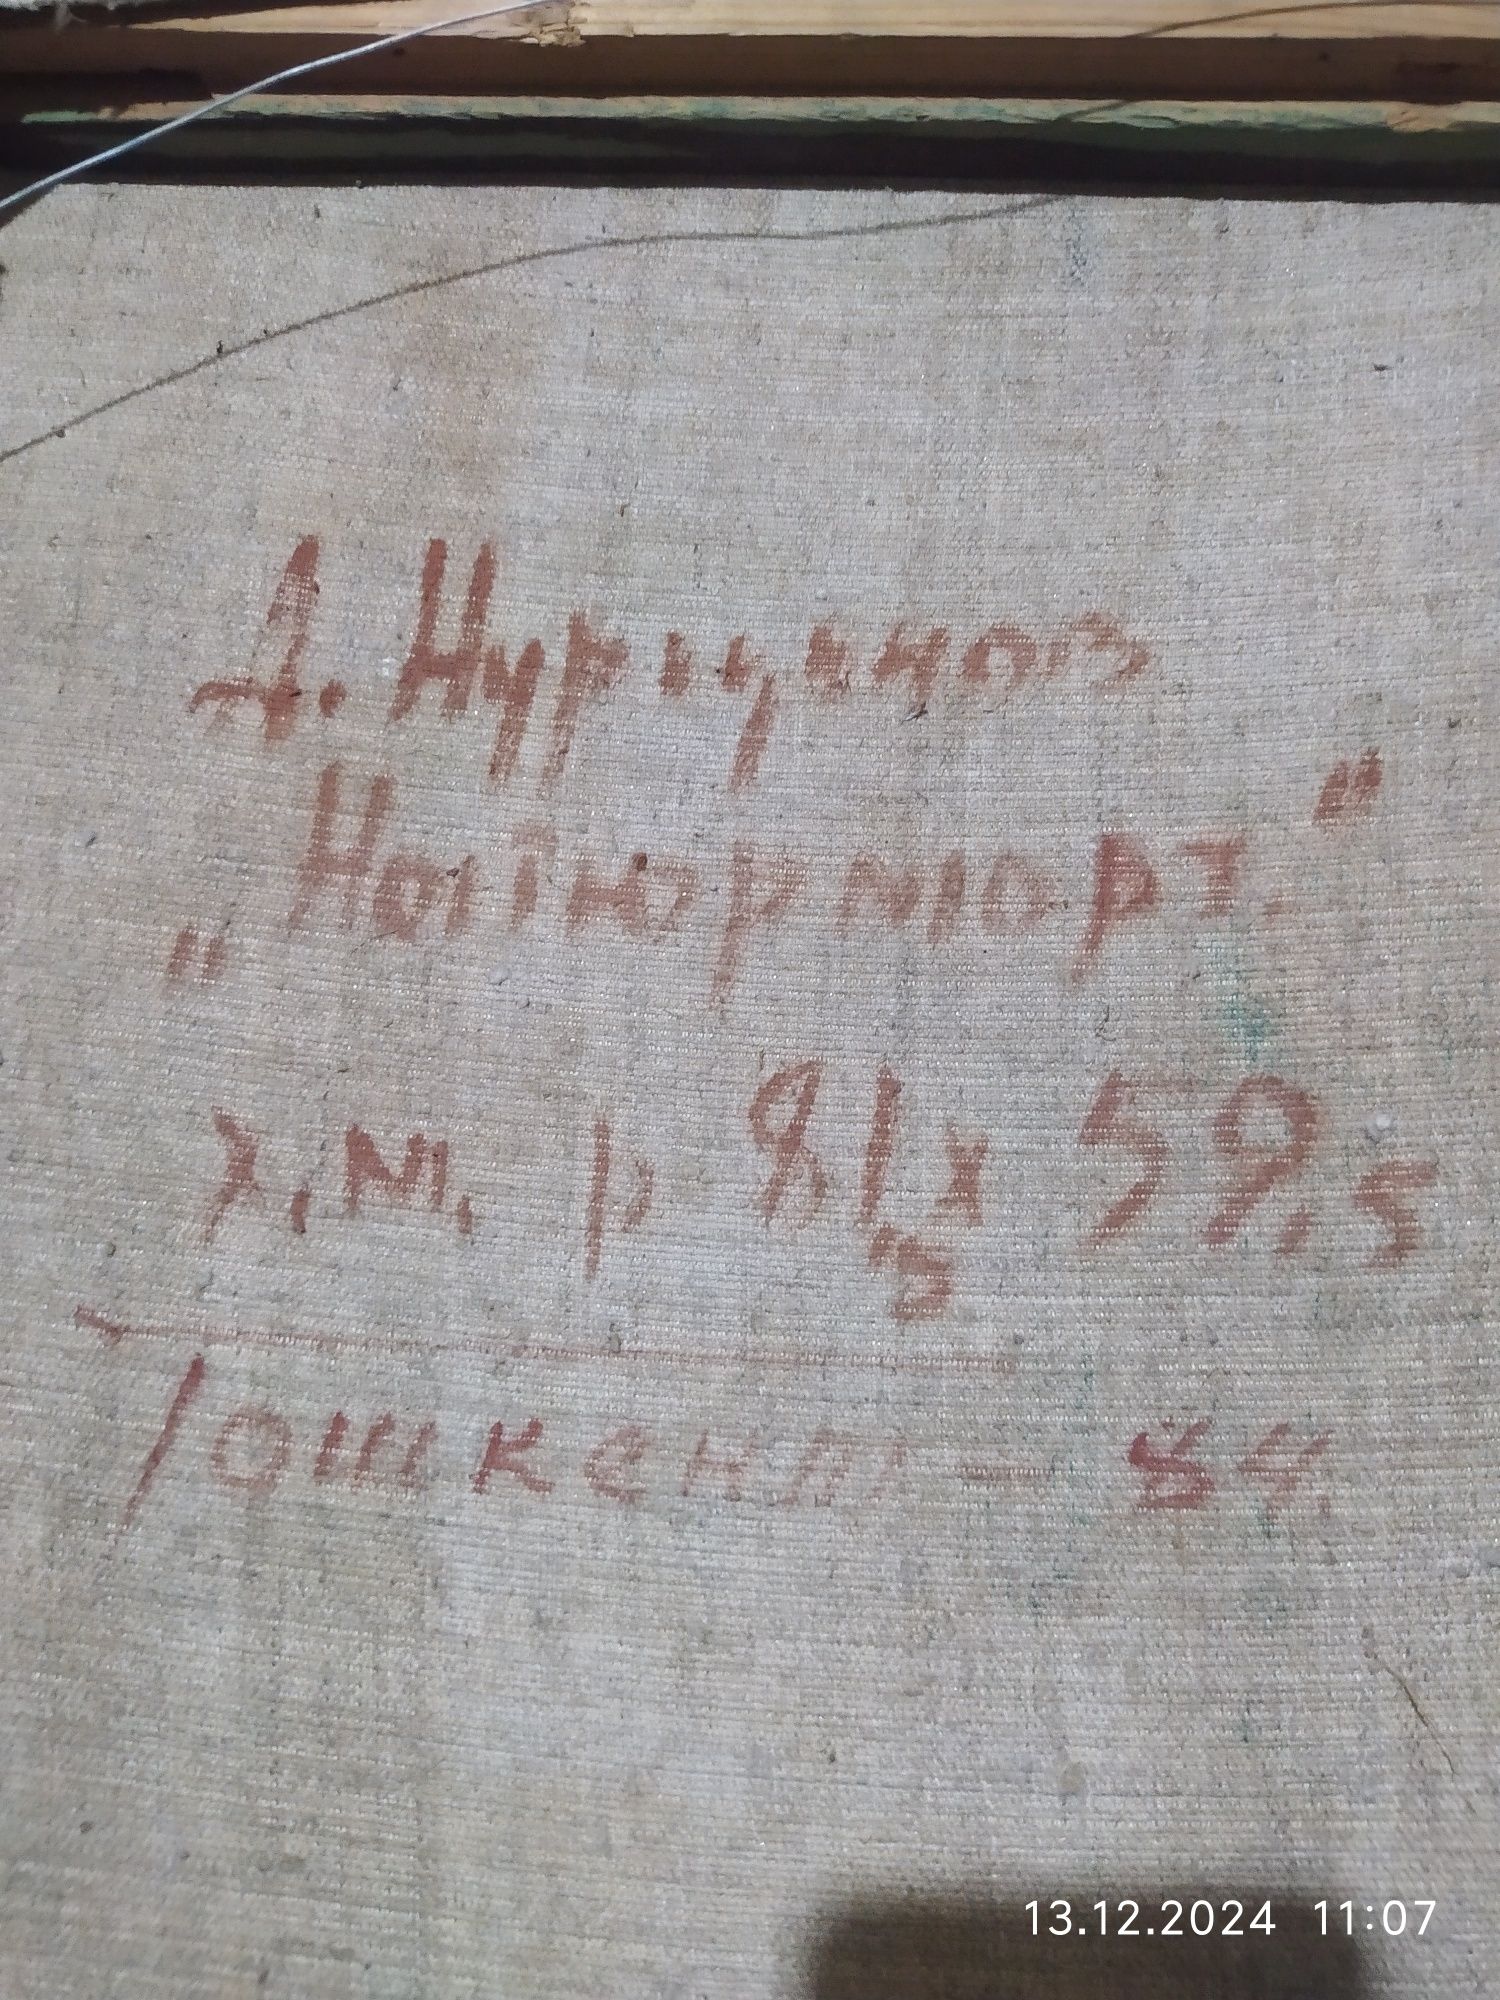 А.
"Натюрморт."
х.м. р 81,5 х 59,5
Тошкент — 84.
13.12.2024 11:07